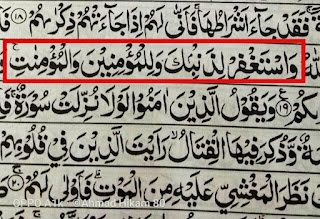 فَقَدْ جَآءَ اَشْرَاطُهَا ۚ فَاَنّٰى لَهُمْ اِذَا جَآءَتْهُمْ ذِكْرٰىهُمْ ١٨
وَاسْتَغْفِرْ لِذَنْۢبِكَ وَلِلْمُؤْمِنِيْنَ وَالْمُؤْمِنٰتِ ۗ
ىكُمْ ١٩ وَيَقُوْلُ الَّذِيْنَ اٰمَنُوْا لَوْلَا نُزِّلَتْ سُوْرَةٌ ۚ
ةٌ وَّذُكِرَ فِيْهَا الْقِتَالُ ۙ رَاَيْتَ الَّذِيْنَ فِيْ قُلُوْبِهِمْ
نَظَرَ الْمَغْشِيِّ عَلَيْهِ مِنَ الْمَوْتِ ۗ فَاَوْلٰى لَهُمْ ۚ ٢٠
OPPO A1k ©Ahmad Hikam 80